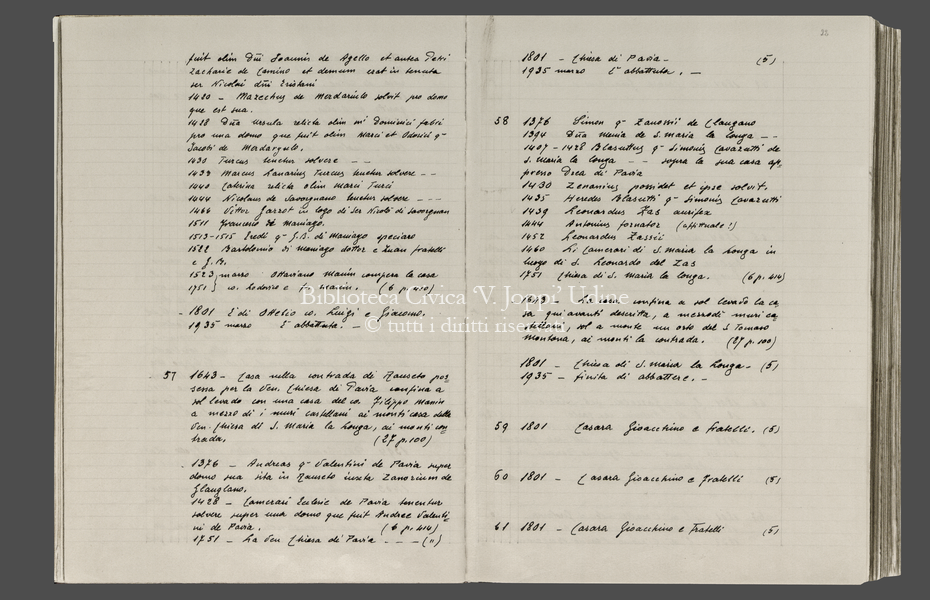 fuit olim Dni Joannis de Agello et antea Petri
zacharie de Camino et demum erat in tenuta
ser Nicolai dni Tristani
1420 - Mazechus de Merdariulo solvit pro domo
que est sua.
1428 Dna Ursula relicta olim mi Dominici fabri
pro una domo que fuit olim Marci et Odorici q-
Jacobi de Merdarjolo.
1430 Turcus tenetur solvere - -
1433 Marcus Turcus tenetur solvere - -
1440 Caterina relicta olim Marci Turci
1444 Nicolaus de Savorgnano tenetur solvere - -
1466 Vittor Garzot in logo di Ser Nicolò di Savorgnan
1511 Francesco de Maniago.
1513-1515 Eredi q- G.B. di Maniago speciaro
1522 Bartolomio di Maniago dottor e Zuan fratelli
e G.B.
1523, marzo Ottaviano Manin compera la casa
1751 } co. Lodovico e Manin. (6 p. 410)
- 1801 Edi Ottelio co. Luigi e Giacomo.
1935 marzo E' abbattuta. -
57 1643 - Casa nella contrada di Rauseto pos=
sessa per la Ven. Chiesa di Pavia confina a
sol levado con una casa del co. Filippo Manin
a mezzo dì i muri castellani ai monti casa della
Ven. Chiesa di S. Maria la Longa, ai monti con
trada. (27 p. 100)
- 1376 - Andreas q- Valentini de Pavia super
domo sua sita in Rauseto iuxta Zanorium de
Glaugiano.
1428 - Camerari Eclesie de Pavia tenentur
solvere super una domo que fuit Andree Valenti=
ni de Pavia. (6 p. 414)
1751 - La Ven Chiesa di Pavia . - - (")
22
1801 - Chiesa di Pavia - (5)
1935 marzo E' abbattuta. -
58 1376 Simon q- Zanossii de Claugano
1394 Dna Menia de S. Maria la Longa - -
1407 - 1428 Blasuttus q- Simonis Cavazutti de
S. Maria la Longa - - sopra la sua casa ap=
presso Drea di Pavia
1430 Zenanius possidet et ipse solvit.
1435 Heredes Blasutti q- Simonis Cavazutti
1439 Leonardus Zas aurifex
1444 Antonius fornator (affittuale!)
1452 Leonardus Zassii
1460 Li Camerari di S. Maria la Longa in
luogo di S. Leonardo del Zas
1751 Chiesa di S. Maria la Longa. (6 p. 414)
1643 - La casa confina a sol levado la ca=
sa qui avanti descritta, a mezzodì muri ca=
stellani, sol a monte un orto del S. Tomaso
Montona, ai monti la contrada. (27 p. 100)
1801 - Chiesa di S. Maria la Longa - (5)
1935 - finita di abbattere. -
59 1801 Casara Gioacchino e Fratelli. (5)
60 1801 - Casara Gioacchino e Fratelli (5)
61 1801 - Casara Gioacchino e Fratelli (5)
Biblioteca Civica 'V. Joppi' Udine
© tutti i diritti riservati